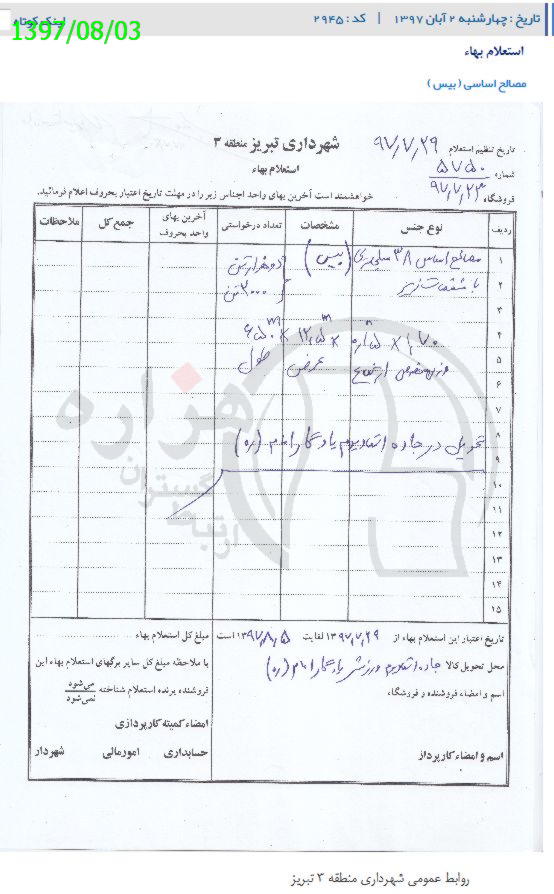 تاریخ : چهارشنبه ۲ آبان ۱۳۹۷ | کد : ۲۹۴۵
لینک کوتاه
1397/08/03
استعلام بهاء
مصالح اساسی ( بیس )
شهرداری تبریز منطقه ۳
استعلام بهاء
تاریخ تنظیم استعلام ۹۷٫۷٫۲۹
شماره ۵۷۵۰
فروشگاه ۹۷٫۷٫۲۳
خواهشمند است آخرین بهای واحد اجناس زیر را در مهلت تاریخ اعتبار بحروف اعلام فرمائید.
ردیف نوع جنس مشخصات تعداد درخواستی آخرین بهای واحد بحروف جمع کل ملاحظات
۱ مصالح اساس ۳۸ میلیمتری (بیس) دو هزار تن
۲ با مشخصات زیر ۲۰۰۰ تن
۳
۴ ۱٫۷۰ × ۰٫۵ × ۱۲٫۵ m × ۶٫۵۰ m
۵ وزن مخصوص ارتفاع عرض طول
۶
۷
۸ تحویل در جاده استادیوم یادگار امام (ره)
۹
۱۰
۱۱
۱۲
۱۳
۱۴
۱۵
هزاره
گستران
ارتباط
تاریخ اعتبار این استعلام بهاء از ۱۳۹۷٫۷٫۲۹ لغایت ۱۳۹۷٫۸٫۵ است
مبلغ کل استعلام بهاء
محل تحویل کالا جاده استادیوم ورزشی یادگار امام (ره)
با ملاحظه مبلغ کل سایر برگهای استعلام بهاء این
فروشنده برنده استعلام شناخته می‌شود نمی‌شود
اسم و امضاء فروشنده و فروشگاه
امضاء کمیته کارپردازی
اسم و امضاء کارپرداز
حسابداری امورمالی شهردار
روابط عمومی شهرداری منطقه ۳ تبریز